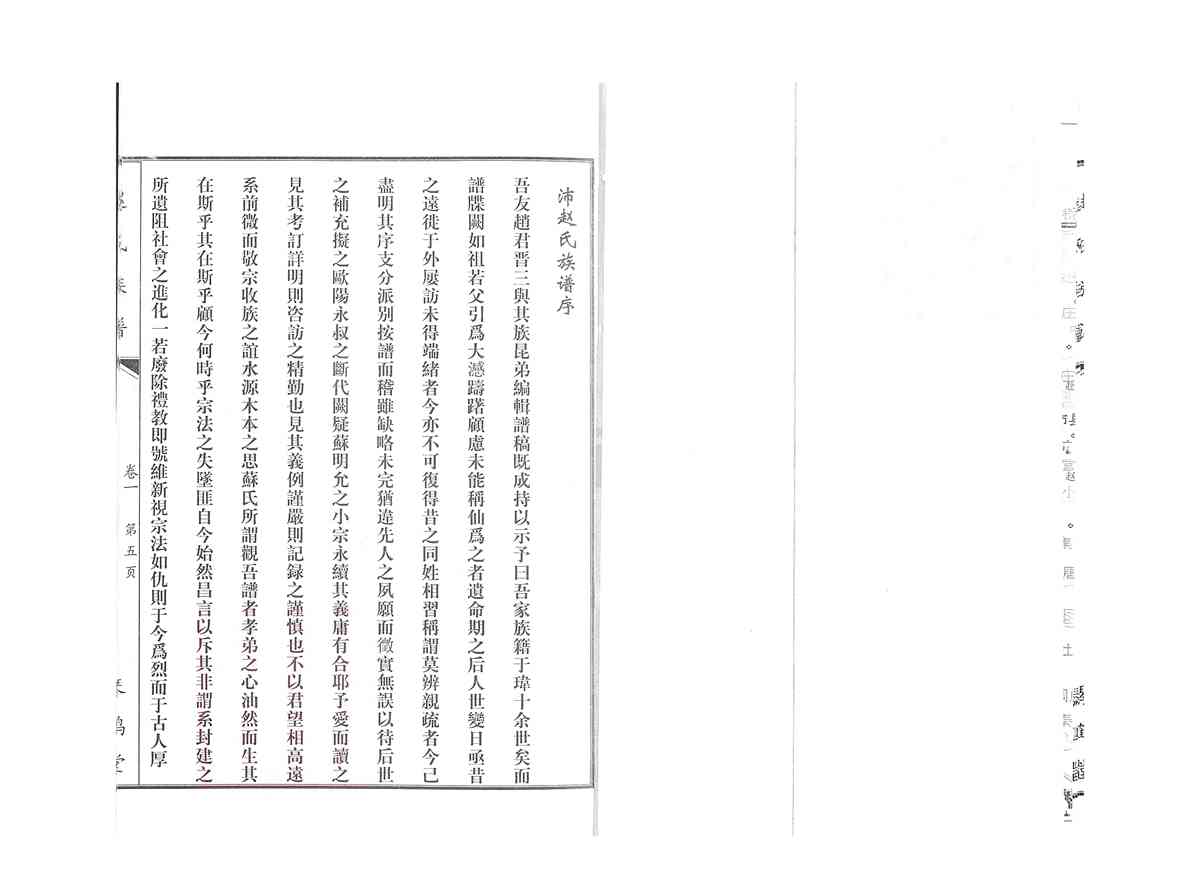 沛赵氏族谱序
吾友趙君晋三與其族昆弟編輯譜稿既成持以示予曰吾家族籍于瑋十余世矣而
譜牒闕如祖若父引爲大憾躊躇顧慮未能稱仙爲之者遺命期之后人世變日亟昔
之遠徙于外屡訪未得端緒者今亦不可復得昔之同姓相習稱謂莫辨親疏者今己
盡明其序支分派別按譜而稽雖缺略未完猶違先人之夙願而徵實無誤以待后世
之補充擬之歐陽永叔之斷代闕疑蘇明允之小宗永續其義庸有合耶予愛而讀之
見其考訂詳明則咨訪之精勤也見其義例謹嚴則記録之謹慎也不以君望相高遠
系前微而敬宗收族之誼水源木本之思蘇氏所謂觀吾譜者孝弟之心油然而生其
在斯乎其在斯乎顧今何時乎宗法之失墜匪自今始然昌言以斥其非謂系封建之
所遺阻社會之進化一若廢除禮教即號維新視宗法如仇則于今爲烈而于古人厚
氏族譜
卷一 第五页